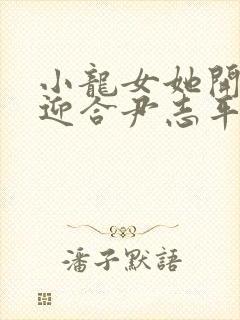 小龍女她開
迎合尹志平
潘子默語